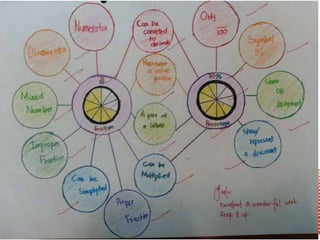 Numerator
Can be
converted to
decimals
Only
100
Symbol
%
Denominator
Represent
a whole
portion
Mixed
Number
Show
an
Fraction
A part of
a whole
Percentage
Improper
Fraction
Show/
represent
a discount
Can be
Simplified
Can be
Multiplied
Proper
Fraction
Excellent
work
Keep it up.